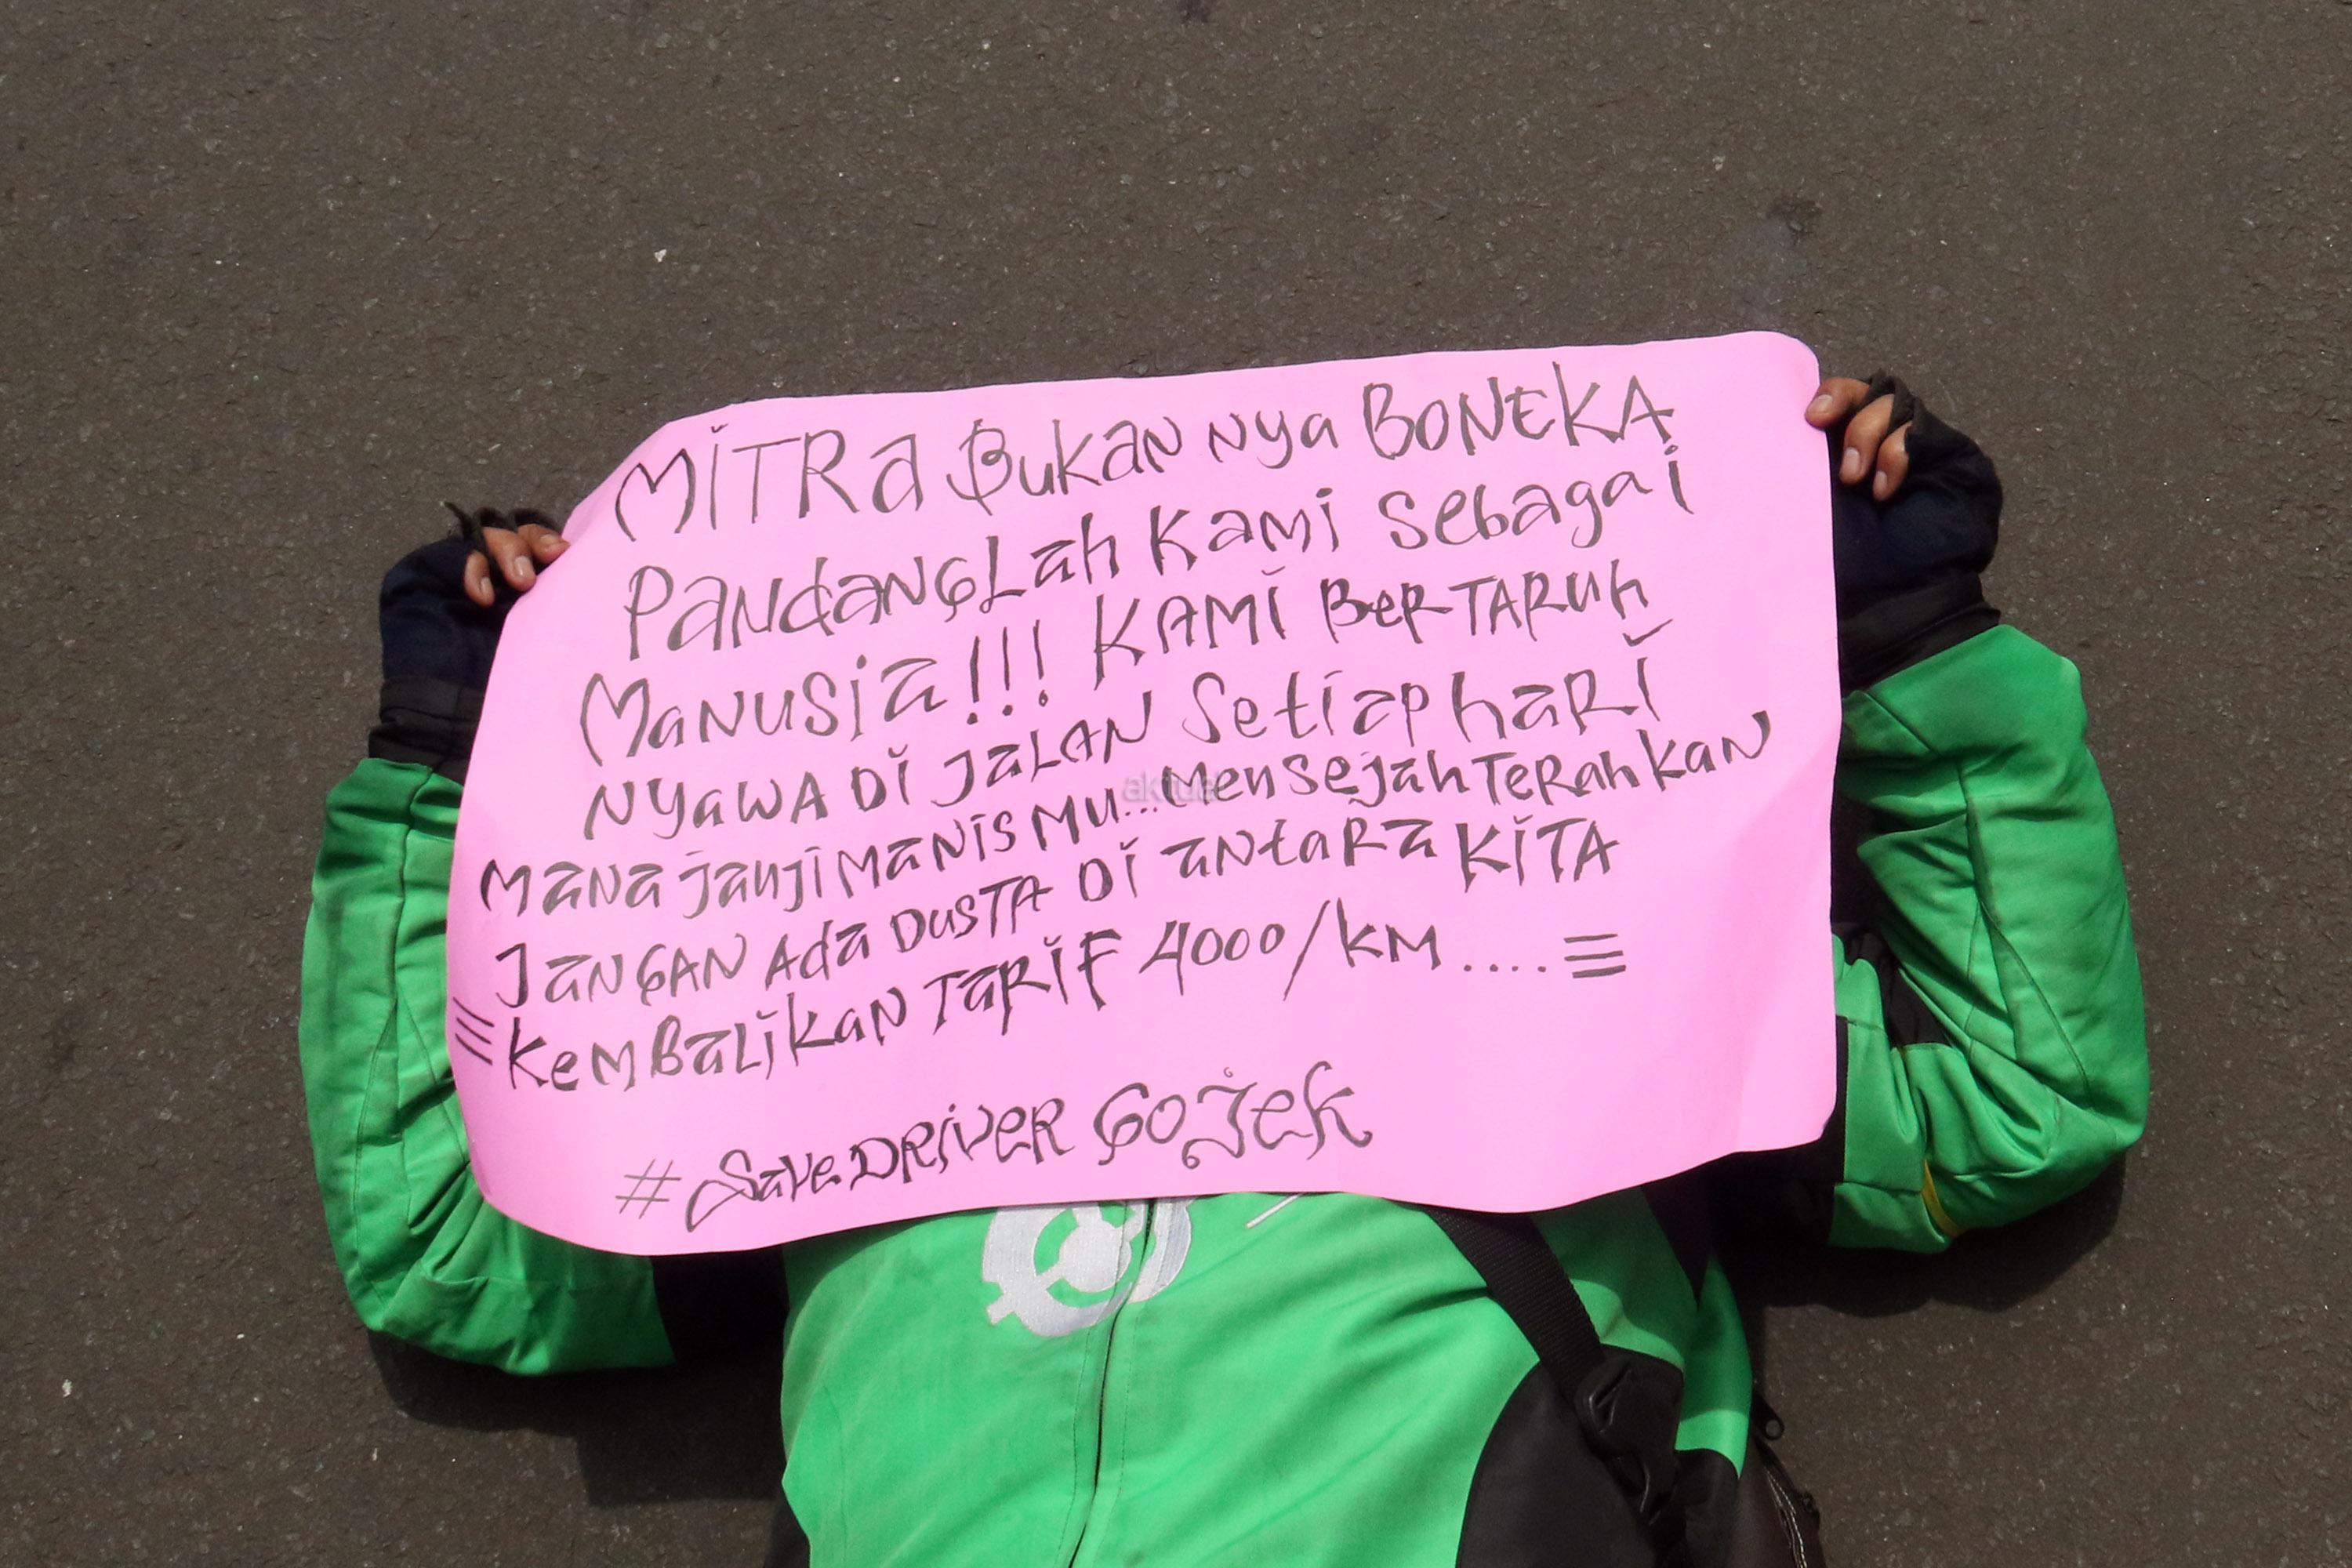 MiTRa Bukan nya BONEKA
PandangLah Kami Sebagai
Manusia!!! KAMI BerTARuh
NyaWA Di JaLAN Setiap haRi
Mana janji Manis Mu... MenSejahTeRahkan
JanGAN Ada DusTA Di antaRa KiTA
KemBaLikan TaRiF 4000/KM....
#SaveDRiveR GoJek
aktual